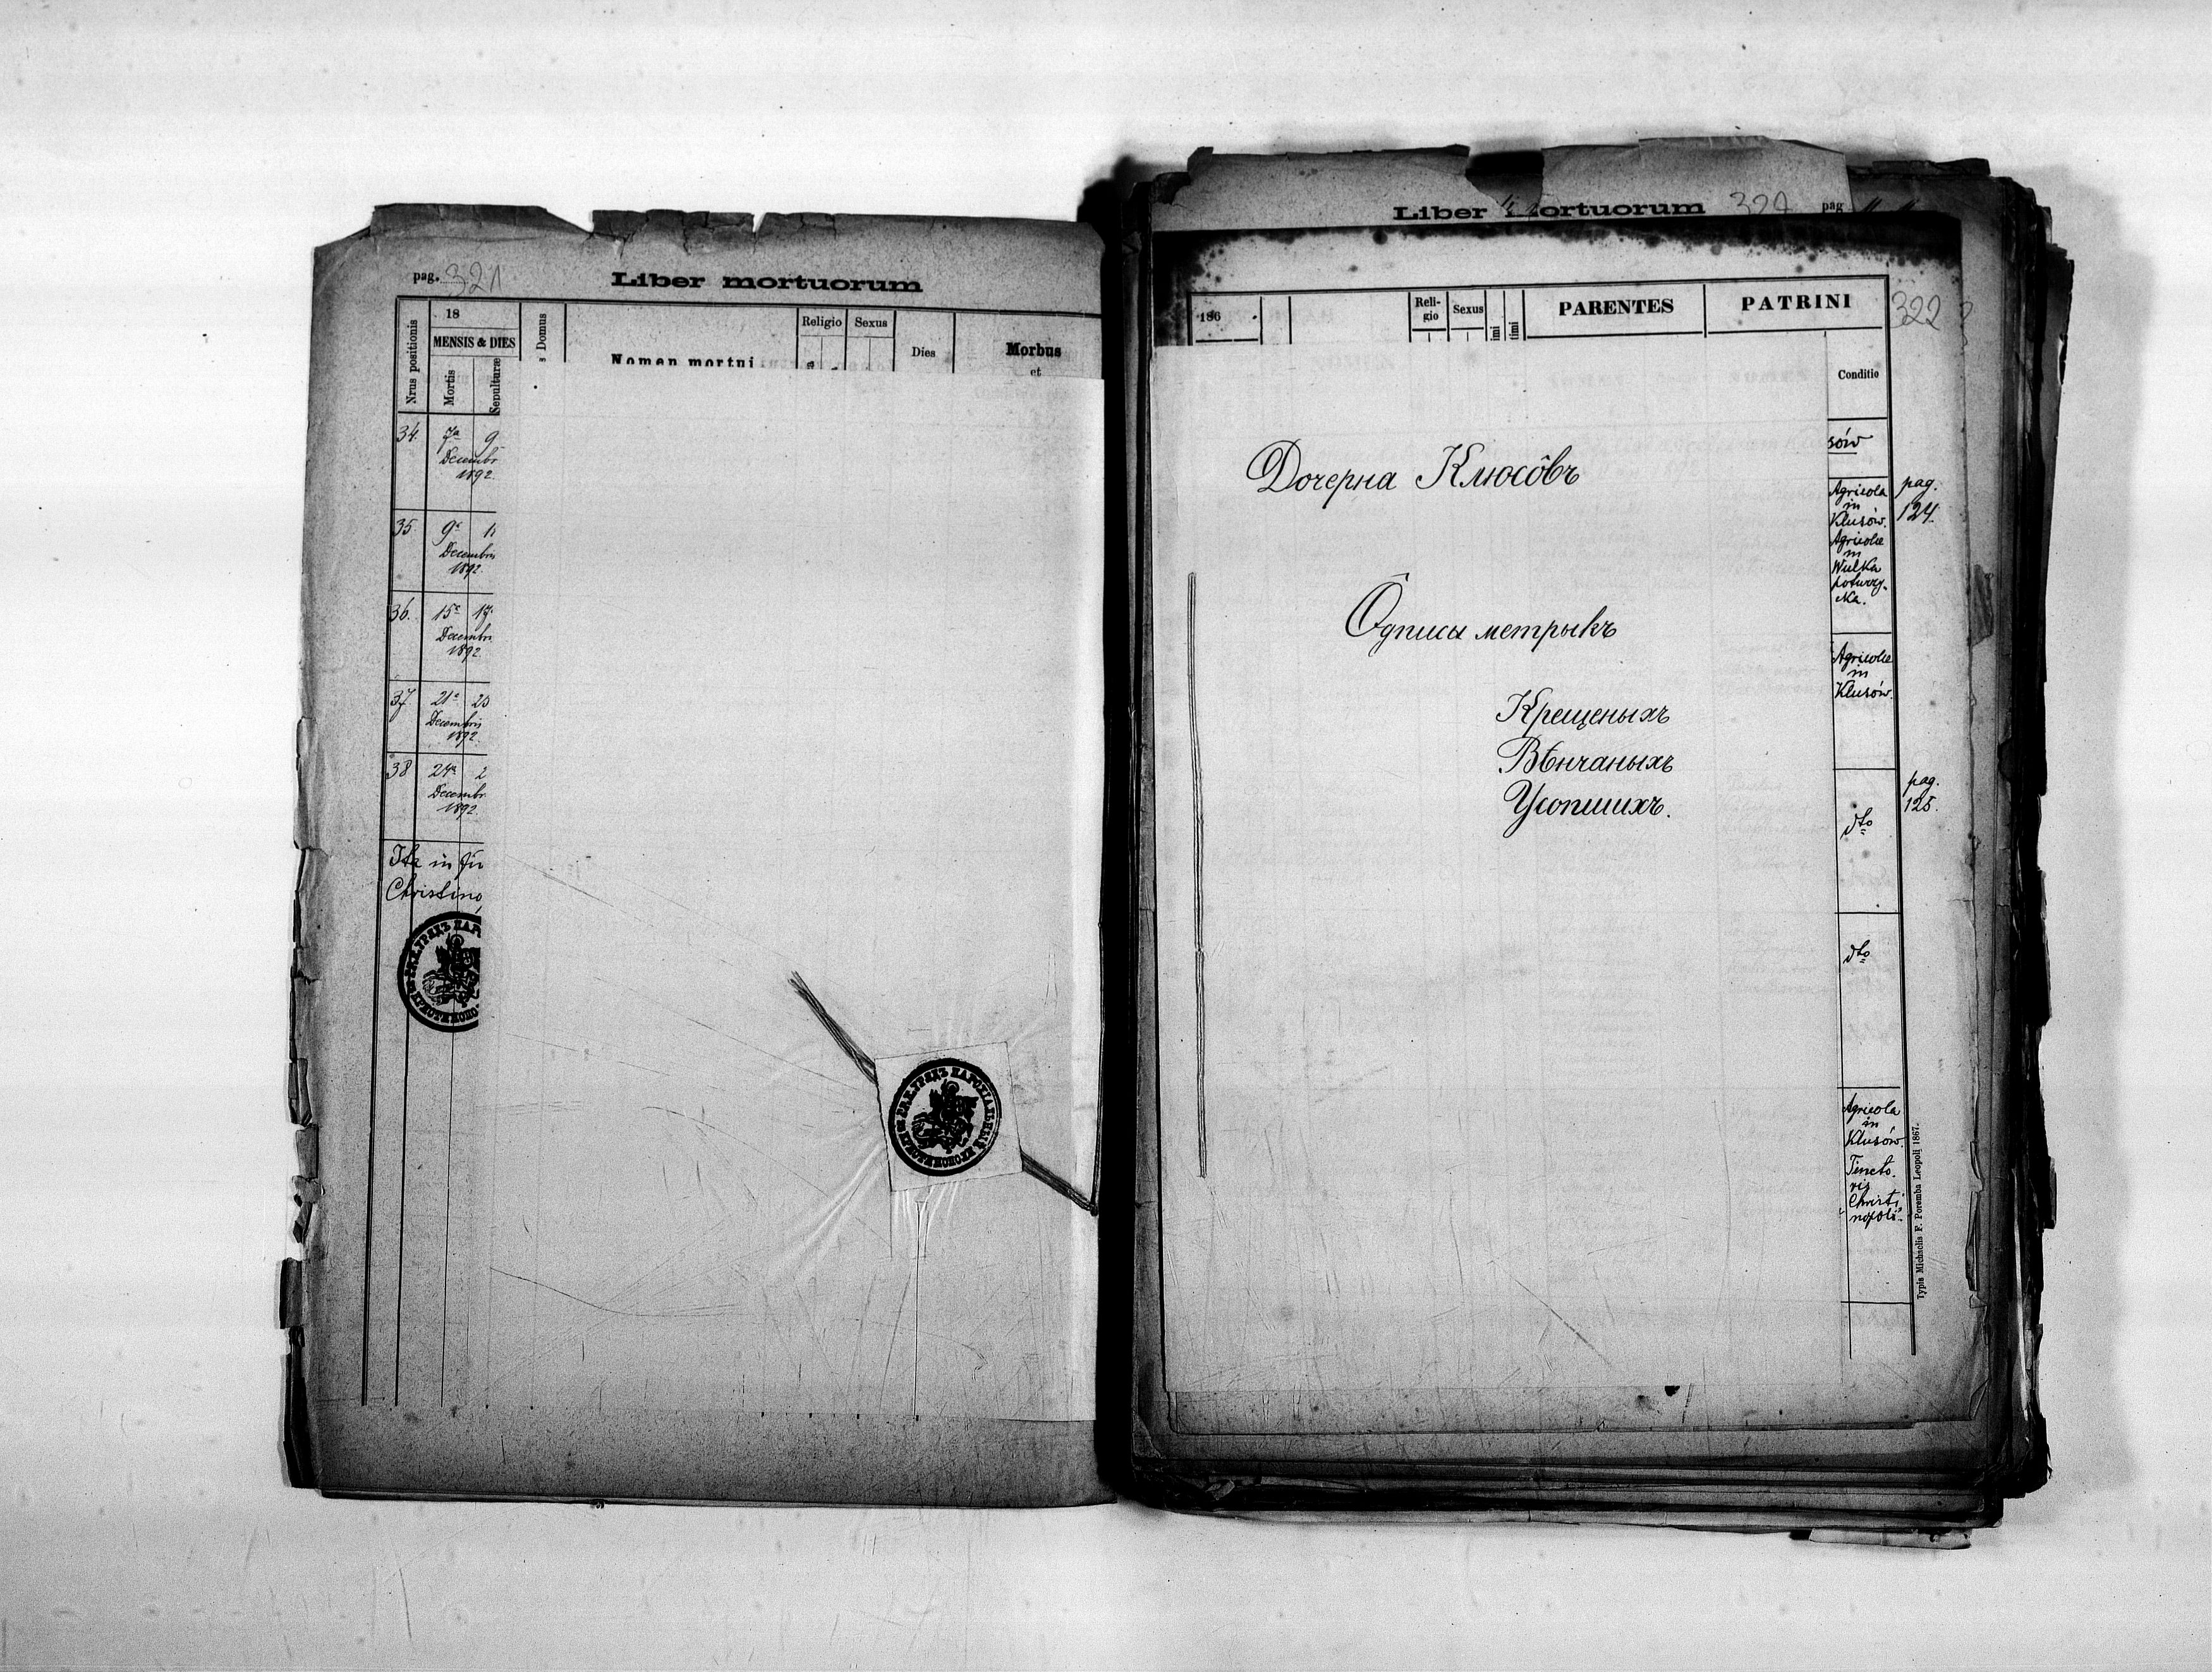 pag. 321
Liber mortuorum
Nrus positionis
18
MENSIS & DIES
Mortis
Sepulturæ
Domus
Nomen mortui
Religio
Sexus
Dies
Morbus
et
34. 7a 9
Decembr
1892.
35. 9a 11
Decembris
1892.
36. 15a 17
Decembris
1892.
37 21a 23
Decembris
1892.
38 24a 2
Decembr
1892.
Ita in
Christino
УРЯДЪ ПАРОХІАЛЬНЫЙ
Liber mortuorum pag
322
186
Reli-
gio
Sexus
PARENTES
PATRINI
Conditio
Дочерна Клюсôвъ
Ôдписы метрыкъ
Крещеныхъ
Вѣнчаныхъ
Усопшихъ.
sów
Agricola
in
Klusów.
pag.
124.
Agricolæ
in
Wulka
poturzy-
cka.
Agricolæ
in
Klusów.
pag.
125.
dto
dto
Agricola
in
Klusów.
Tincto-
ris
Christi
nopoli.
Typis Michaelis F. Poremba Leopoli 1867.